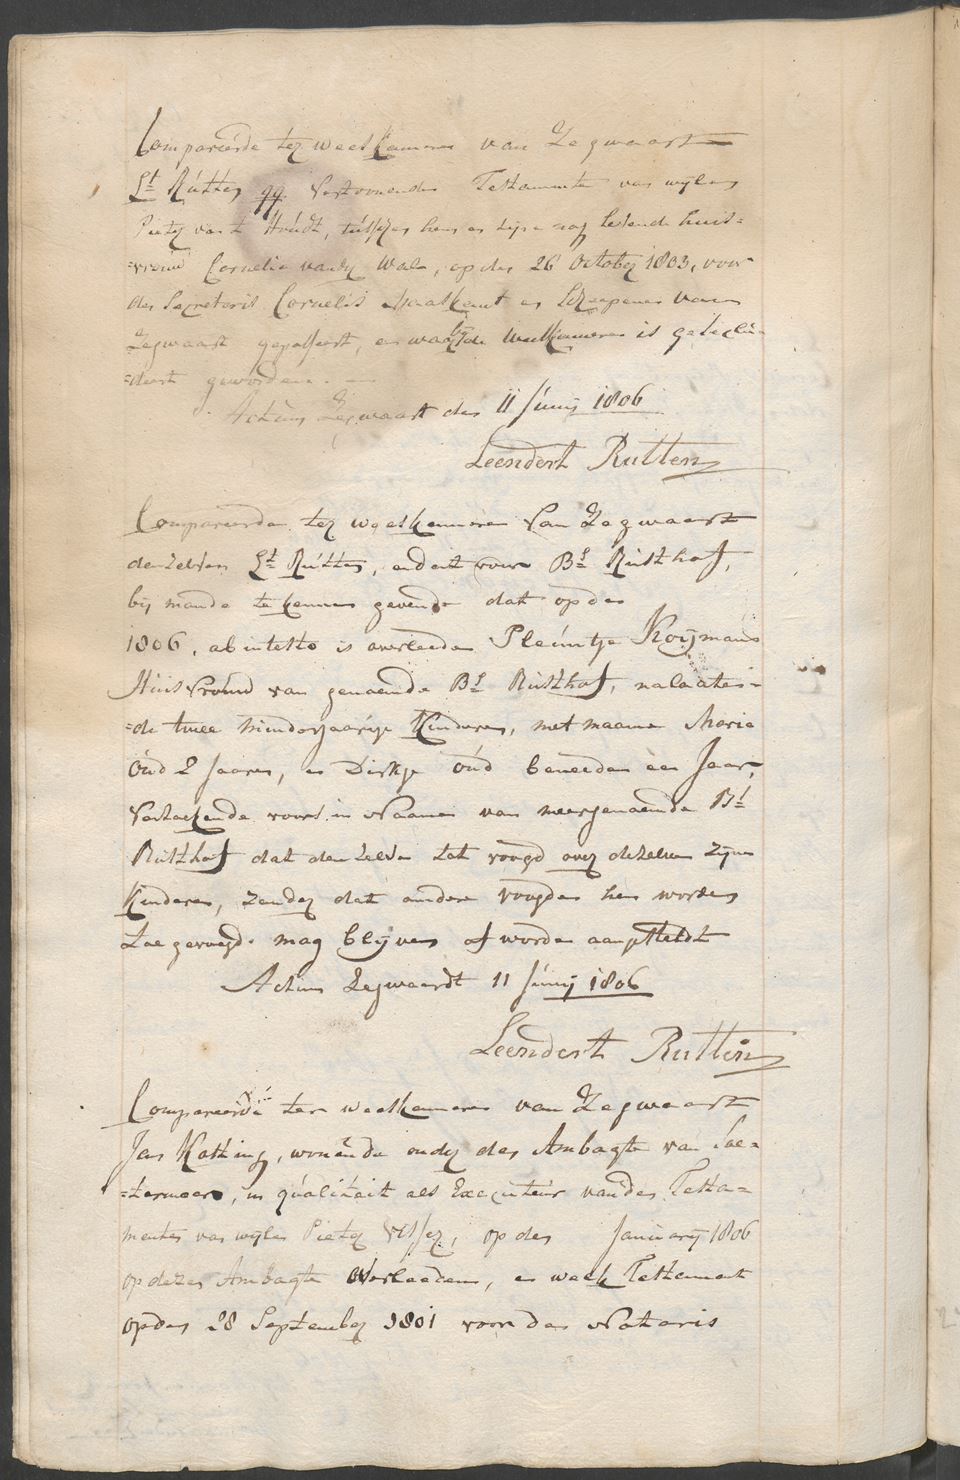 Compareerde ter weeskamere van Zegwaart
Lt Rutten qq. Vertoonende Testamente van wijlen
Pieter van t Houdt, tusschen hem en zijn nog levende huis=
=vrouw Cornelia vander Wal, op den 26 October 1803, voor
den Secretaris Cornelis Maaskant en Scheepenen van
Zegwaart gepasseert, en waar bij de weeskamere is geseclu=
=deert geworden. —
Actum Zegwaart den 11 Junij 1806
Leendert Rutten
Compareerde ter weeskamere van Zegwaart
denzelven Lt Rutten, endert voor Bt Rusthof,
bij monde te kennen gevende dat op den
1806, ab intesto is overleeden Pleuntje Kooijmans
Huisvrouw van genaemde Bt Rusthof, nalaaten=
=de twee minderjaarige Kinderen, met naame Maria
oud 2 Jaaren, en Dirkje oud beneeden een Jaar,
Verzoekende voors. in Naame van meergenaemde Bt
Rusthof dat denzelve tot voogd over dezelve zijne
Kinderen, zonder dat andere voogden hem worden
toegevoegd mag blijven of worde aangesteldt
Actum Zegwaardt 11 Junij 1806
Leendert Rutten
Compareerde ter weeskamere van Zegwaart
Jan Kotting, wonende onder den Ambagte van Soe=
=termeer, in qualiteit als Executeur van den Testa=
mente van wijlen Pieter Visser, op den Januarij 1806
op dezen Ambagte Overleeden, en welk Testament
op den 28 September 1801 voor den Notaris